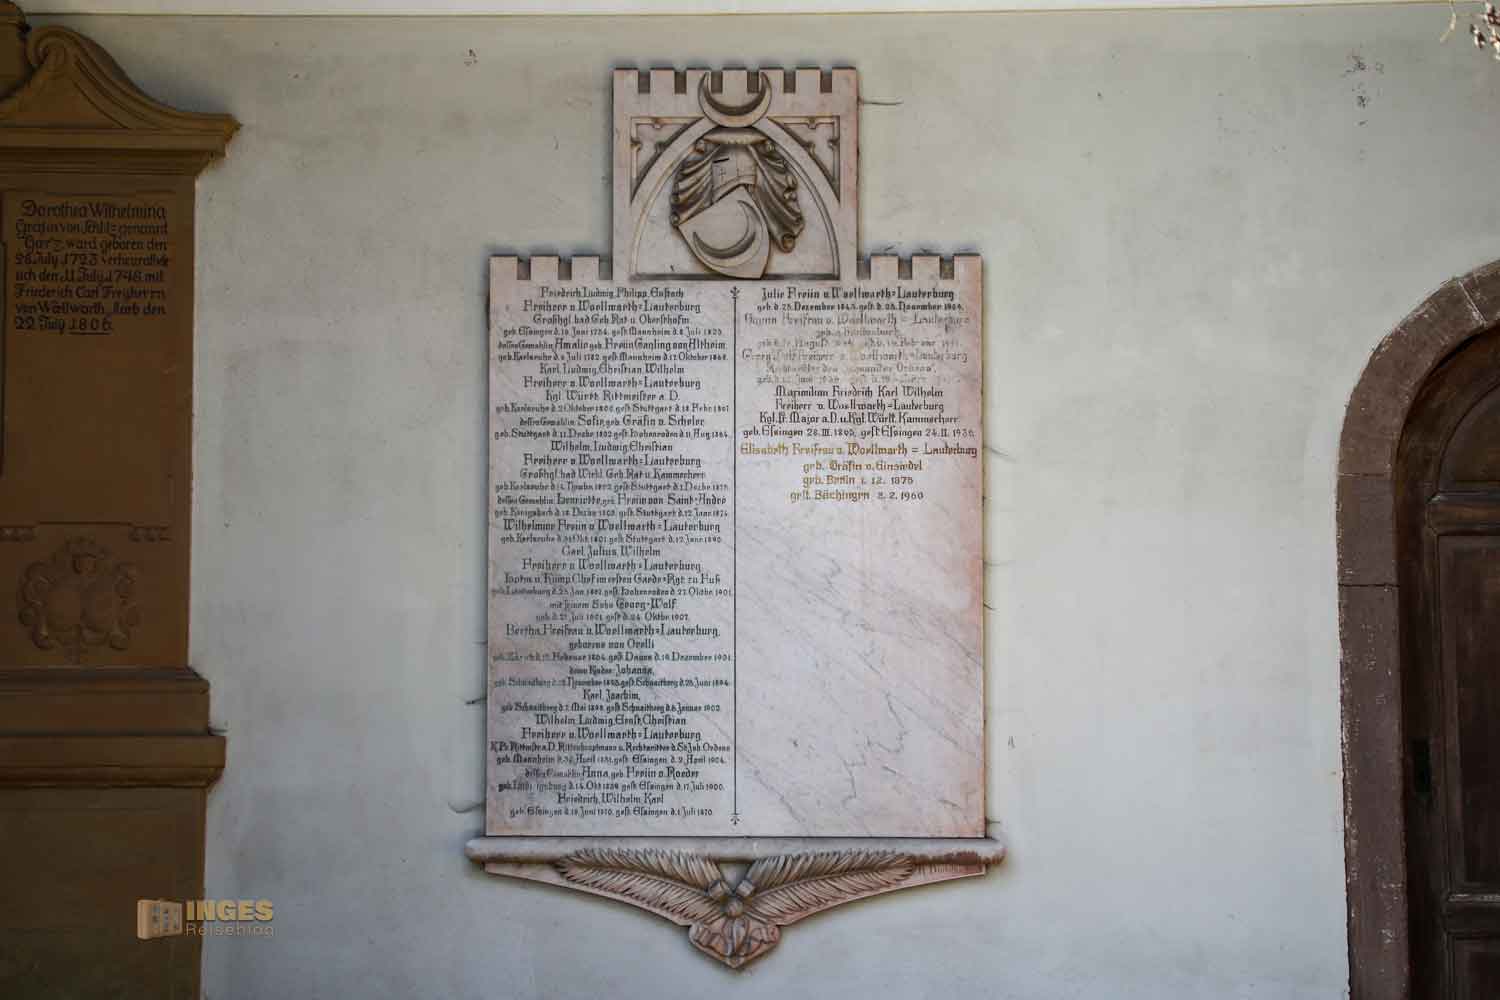 Dorothea Wilhelmina
Gräfin von Schlitz genannt
Görz, ward geboren den
28 July 1723 verheurathete
sich den 11 July 1748 mit
Friederich Carl Freyherrn
von Wöllwarth, starb den
22 July 1806.
Friedrich, Ludwig, Philipp, Eustach
Freiherr v. Woellwarth=Lauterburg
Großhgl. bad. Geh. Rat u. Obersthofm.
geb. Essingen d. 10. Juni 1754, gest. Mannheim d. 8. Juli 1823.
dessen Gemahlin: Amalie geb. Freiin Gayling von Altheim
geb. Karlsruhe d. Juli 1782. gest. Mannheim d. 17. Oktober
Karl, Ludwig, Christian, Wilhelm
Freiherr v. Woellwarth=Lauterburg
Kgl. Württ. Rittmeister a. D.
geb. Karlsruhe d. 2. Oktober 1800, gest. Stuttgart d. 18. Febr. 1867
dessen Gemahlin: Sofie, geb. Gräfin v. Scheler
geb. Stuttgart d. 11. Dezbr. 1802 gest. Hohenroden d. 11. Aug. 1864.
Wilhelm, Ludwig, Christian
Freiherr v. Woellwarth=Lauterburg
Großhgl. bad. Wirkl. Geh. Rat u. Kammerherr
geb. Karlsruhe d. 14. Novbr. gest. Stuttgart d. 1. Dezbr. 1875.
dessen Gemahlin: Henriette, geb. Freiin von Saint-André
geb. Königsbach d. 18. Dezbr. gest. Stuttgart d. 12. Janr. 1874
Wilhelmine Freiin v. Woellwarth=Lauterburg
geb. Karlsruhe d. 31. Okt. 1801. gest. Stuttgart d. 12. Janr. 1890.
Carl, Julius, Wilhelm
Freiherr v. Woellwarth=Lauterburg
Hptm. u. Komp. Chef im ersten Garde=Rgt. zu Fuß
geb. Lauterburg d. 25. Jan. 1862, gest. Hohenroden d. 27. Oktbr. 1901.
mit seinem Sohn Georg-Wolf
geb. d. 21. Juli 1901. gest. d. 24. Oktbr. 1907.
Bertha, Freifrau v. Woellwarth=Lauterburg,
geborene von Orelli
geb. Zürich d. 12. Februar 1864, gest. Davos d. 19. Dezember 1901.
deren Kinder: Johanna,
geb. Schnaitberg d. 12. November 1893, gest. Schnaitberg d. 25. Juni 1894.
Karl, Joachim,
geb. Schnaitberg d. 7. Mai 1898, gest. Schnaitberg d. 6. Januar 1902.
Wilhelm, Ludwig, Ernst, Christian
Freiherr v. Woellwarth=Lauterburg
K. Pr. Rittmstr. a. D. Ritterhauptmann u. Rechtsritter d. St. Joh. Ordens
geb. Mannheim d. 30. April 1831, gest. Essingen d. 2. April 1904.
dessen Gemahlin Anna, geb. Freiin v. Roeder
geb. Ludwigsburg d. 14. Okt. 1838 gest. Essingen d. 17. Juli 1900.
Friedrich, Wilhelm, Karl
geb. Essingen d. 19. Juni 1870, gest. Essingen d. 1. Juli 1870.
Julie Freiin v. Woellwarth=Lauterburg
geb. d. 23. Dezember 1843. gest. d. 28. November 1909.
Freifrau v. Woellwarth = Lauterburg
Georg Freiherr v. Woellwarth=Lauterburg
Rechtsritter des Johanniter Ordens
Maximilian Friedrich Karl Wilhelm
Freiherr v. Woellwarth=Lauterburg
Kgl. Pr. Major a. D. u. Kgl. Württ. Kammerherr
geb. Essingen 28. III. 1865, gest. Essingen 24. II. 1936
Elisabeth Freifrau v. Woellwarth = Lauterburg
geb. Gräfin v. Einsiedel
geb. Berlin 1. 12. 1875
gest. Bächingen 2. 2. 1960
INGES
Reiseblog